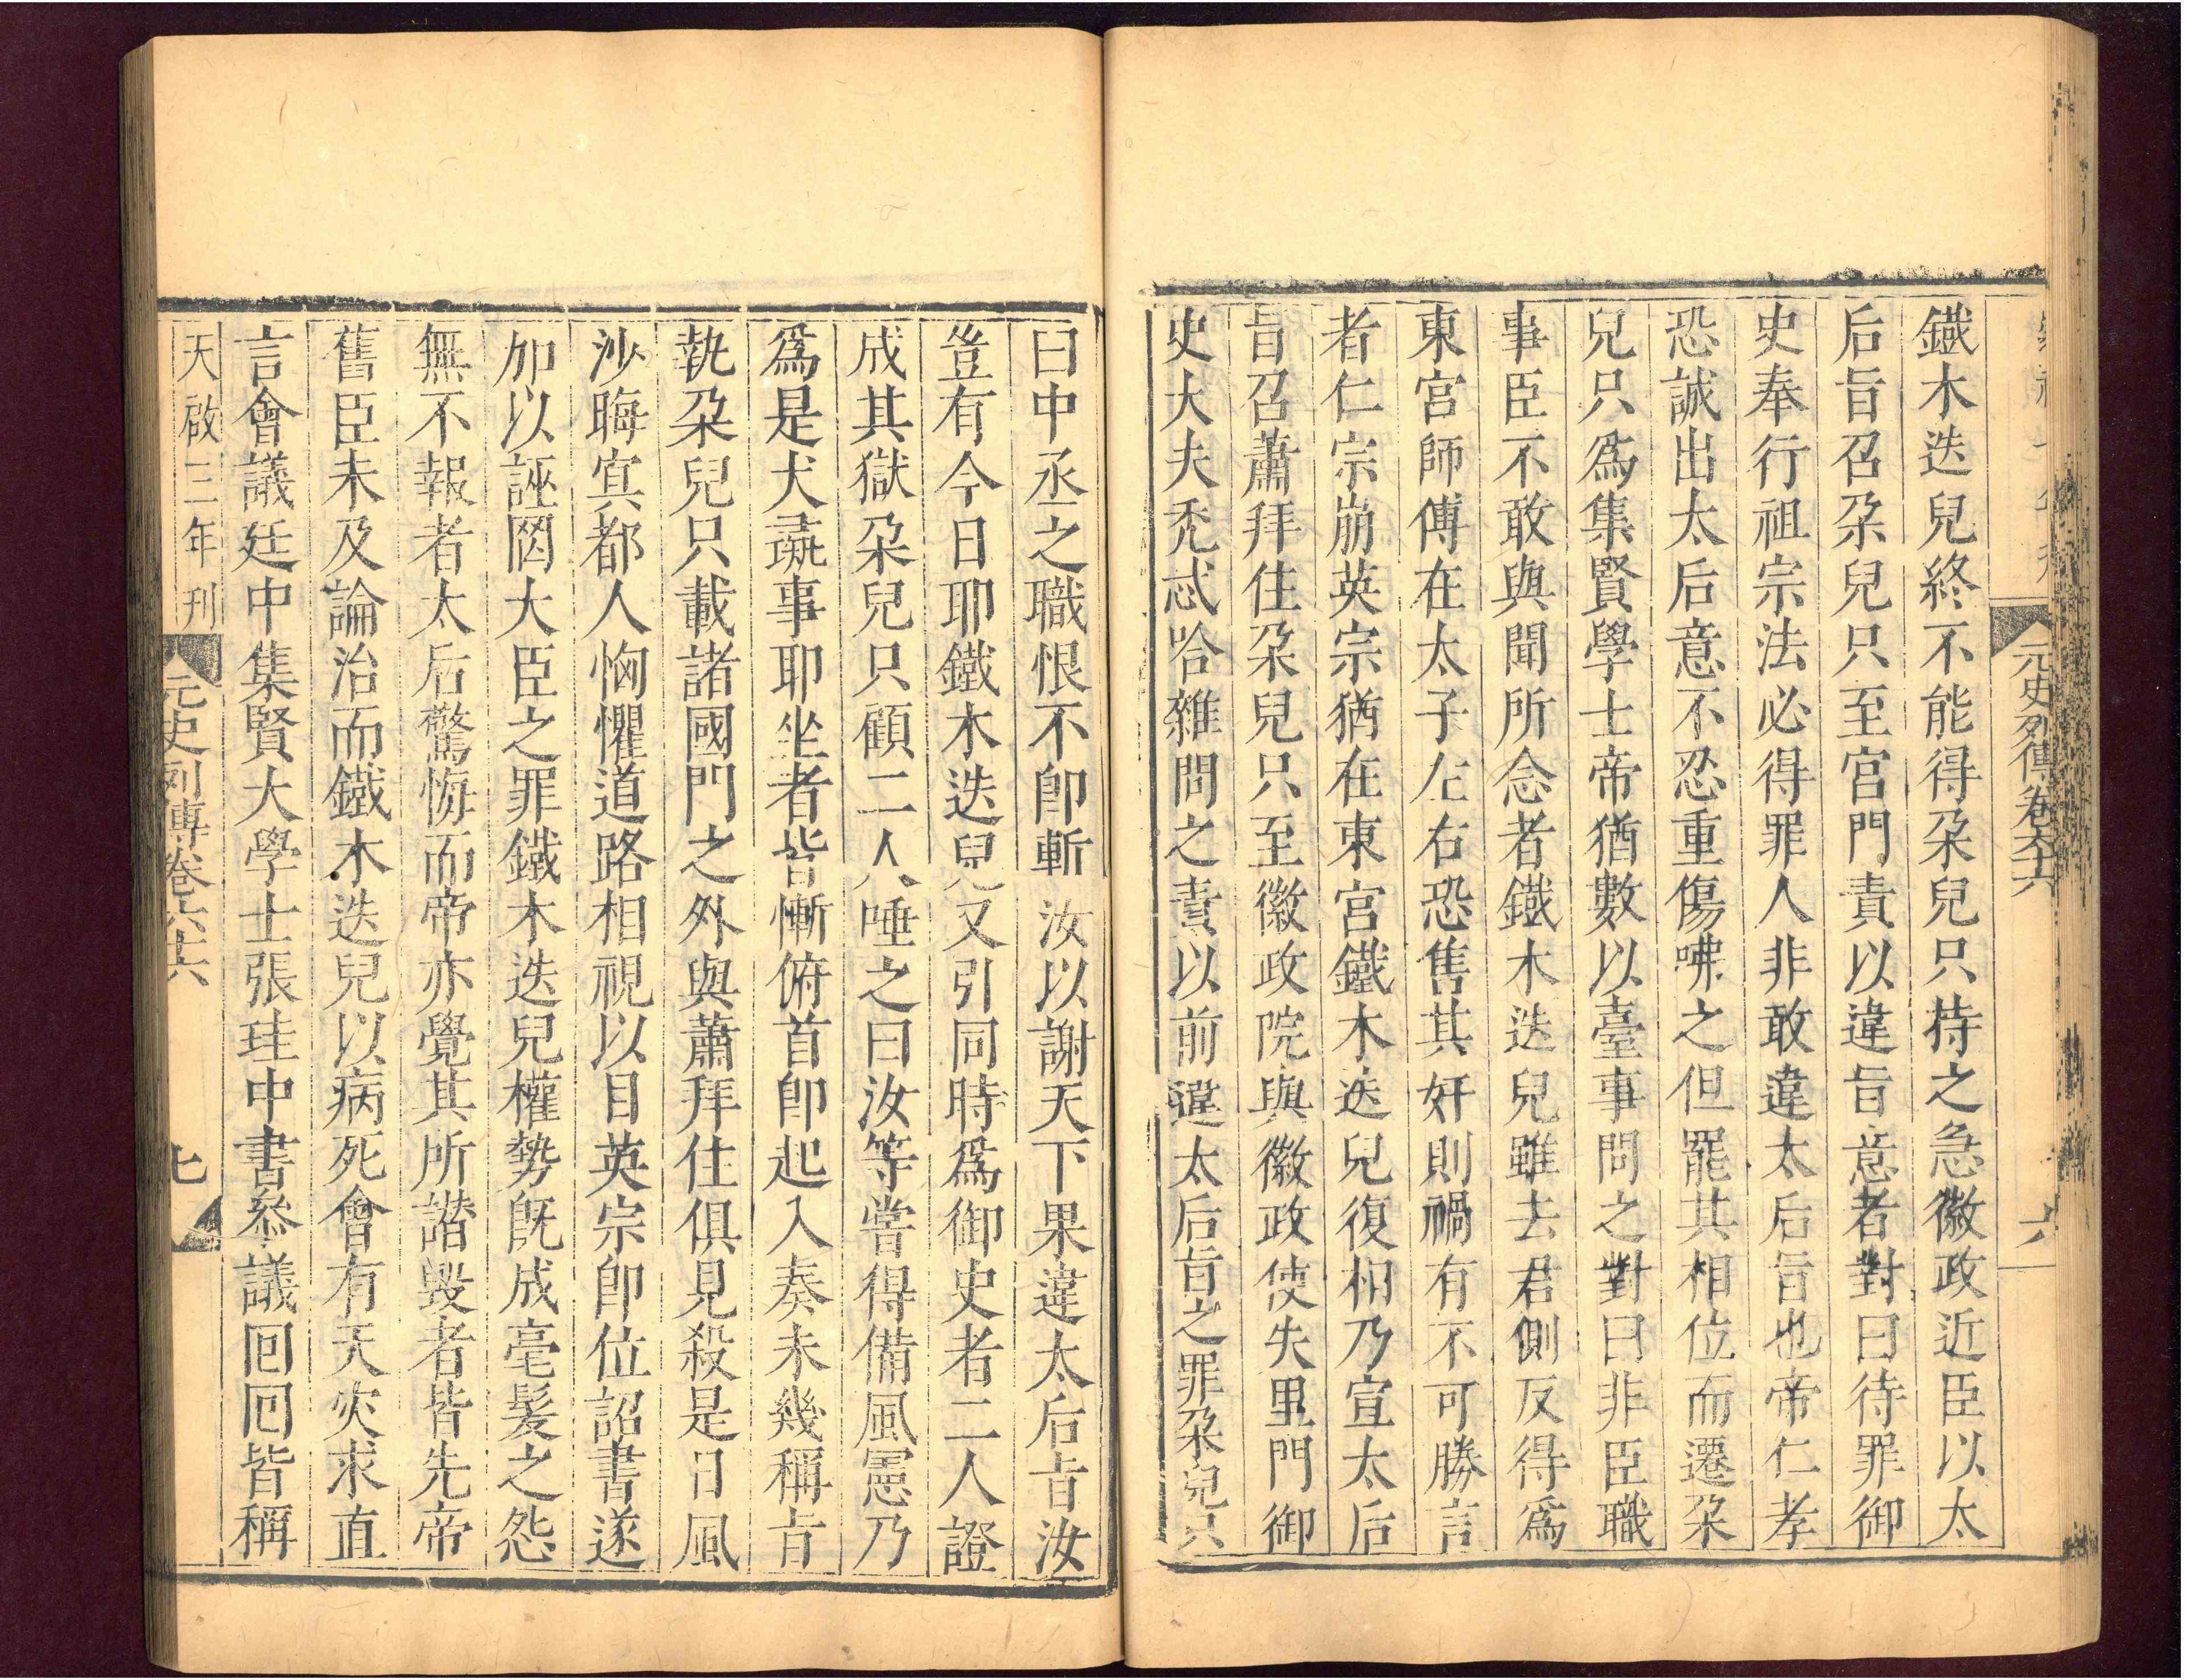 元史列傳卷六十六
六
鐵木迭兒終不能得朶兒只持之急徽政近臣以太
后旨召朶兒只至宮門責以違旨意者對曰待罪御
史奉行祖宗法必得罪人非敢違太后旨也帝仁孝
恐誠出太后意不忍重傷咈之但罷其相位而遷朶
兒只爲集賢學士帝猶數以臺事問之對曰非臣職
事臣不敢與聞所念者鐵木迭兒雖去君側反得爲
東宮師傅在太子左右恐售其奸則禍有不可勝言
者仁宗崩英宗猶在東宮鐵木迭兒復相乃宣太后
旨召蕭拜住朶兒只至徽政院與徽政使失里門御
史大夫禿忒哈雜問之責以前違太后旨之罪朶兒只
曰中丞之職恨不卽斬汝以謝天下果違太后旨汝
豈有今日耶鐵木迭兒又引同時爲御史者二人證
成其獄朶兒只顧二人唾之曰汝等嘗得備風憲乃
爲是犬彘事耶坐者皆慚俯首卽起入奏未幾稱旨
執朶兒只載諸國門之外與蕭拜住俱見殺是日風
沙晦冥都人恟懼道路相視以目英宗卽位詔書遂
加以誣罔大臣之罪鐵木迭兒權勢旣成毫髮之怨
無不報者太后驚悔而帝亦覺其所譖毀者皆先帝
舊臣未及論治而鐵木迭兒以病死會有天灾求直
言會議廷中集賢大學士張珪中書叅議回回皆稱
天啟三年刊
元史列傳卷六十六
七